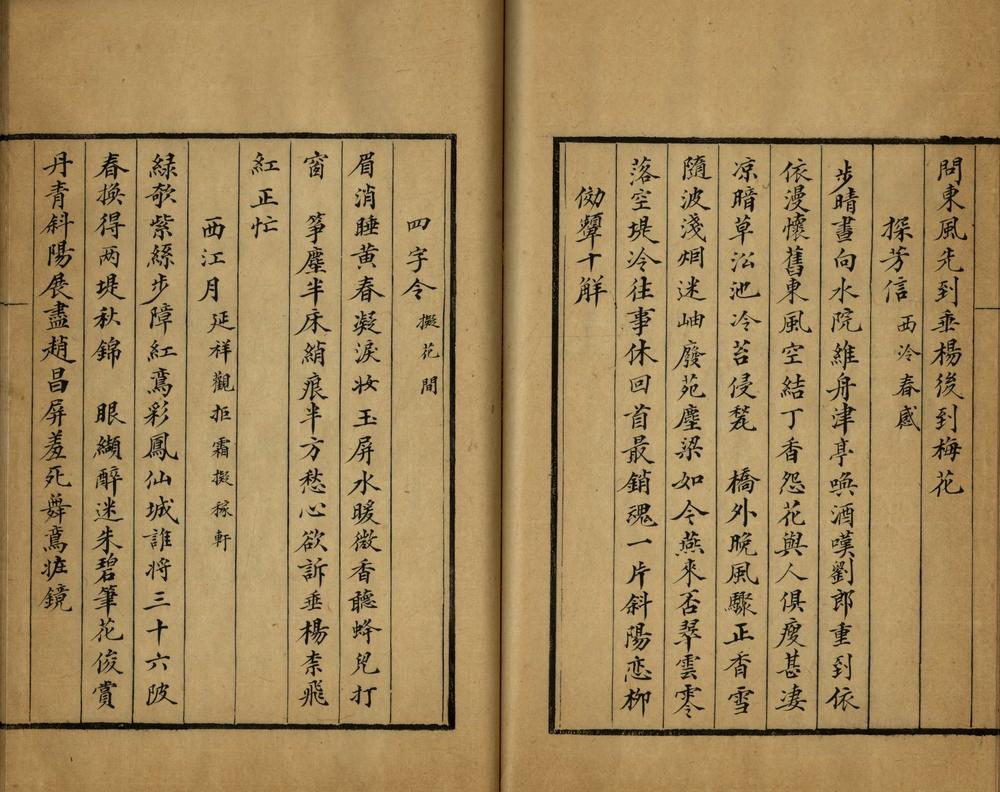 問東風先到垂楊後到梅花
探芳信 西泠春感
步晴晝向水院維舟津亭喚酒嘆劉郎重到依
依漫懷舊東風空結丁香怨花與人俱瘦甚淒
凉暗草沿池冷苔侵甃 橋外晚風驟正香雪
隨波淺烟迷岫廢苑塵梁如今燕來否翠雲零
落空堤冷往事休回首最銷魂一片斜陽恋柳
効顰十解
四字令 擬花間
眉消睡黄春凝淚妆玉屏水暖微香聽蜂兒打
窗 筝塵半床綃痕半方愁心欲訴垂楊柰飛
紅正忙
西江月 延祥觀拒霜擬稼軒
緑欹紫絲步障紅鸞彩鳳仙城誰将三十六陂
春換得两堤秋錦 眼纈醉迷朱碧筆花俊賞
丹青斜陽展盡趙昌屏羞死舞鸞妝鏡